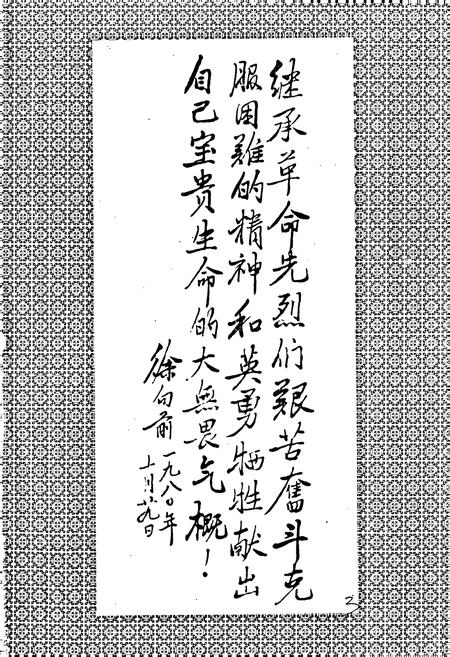 继承革命先烈们艰苦奋斗克
服困难的精神和英勇牺牲献出
自己宝贵生命的大無畏气概！
徐向前一九八〇年
十月廿九日